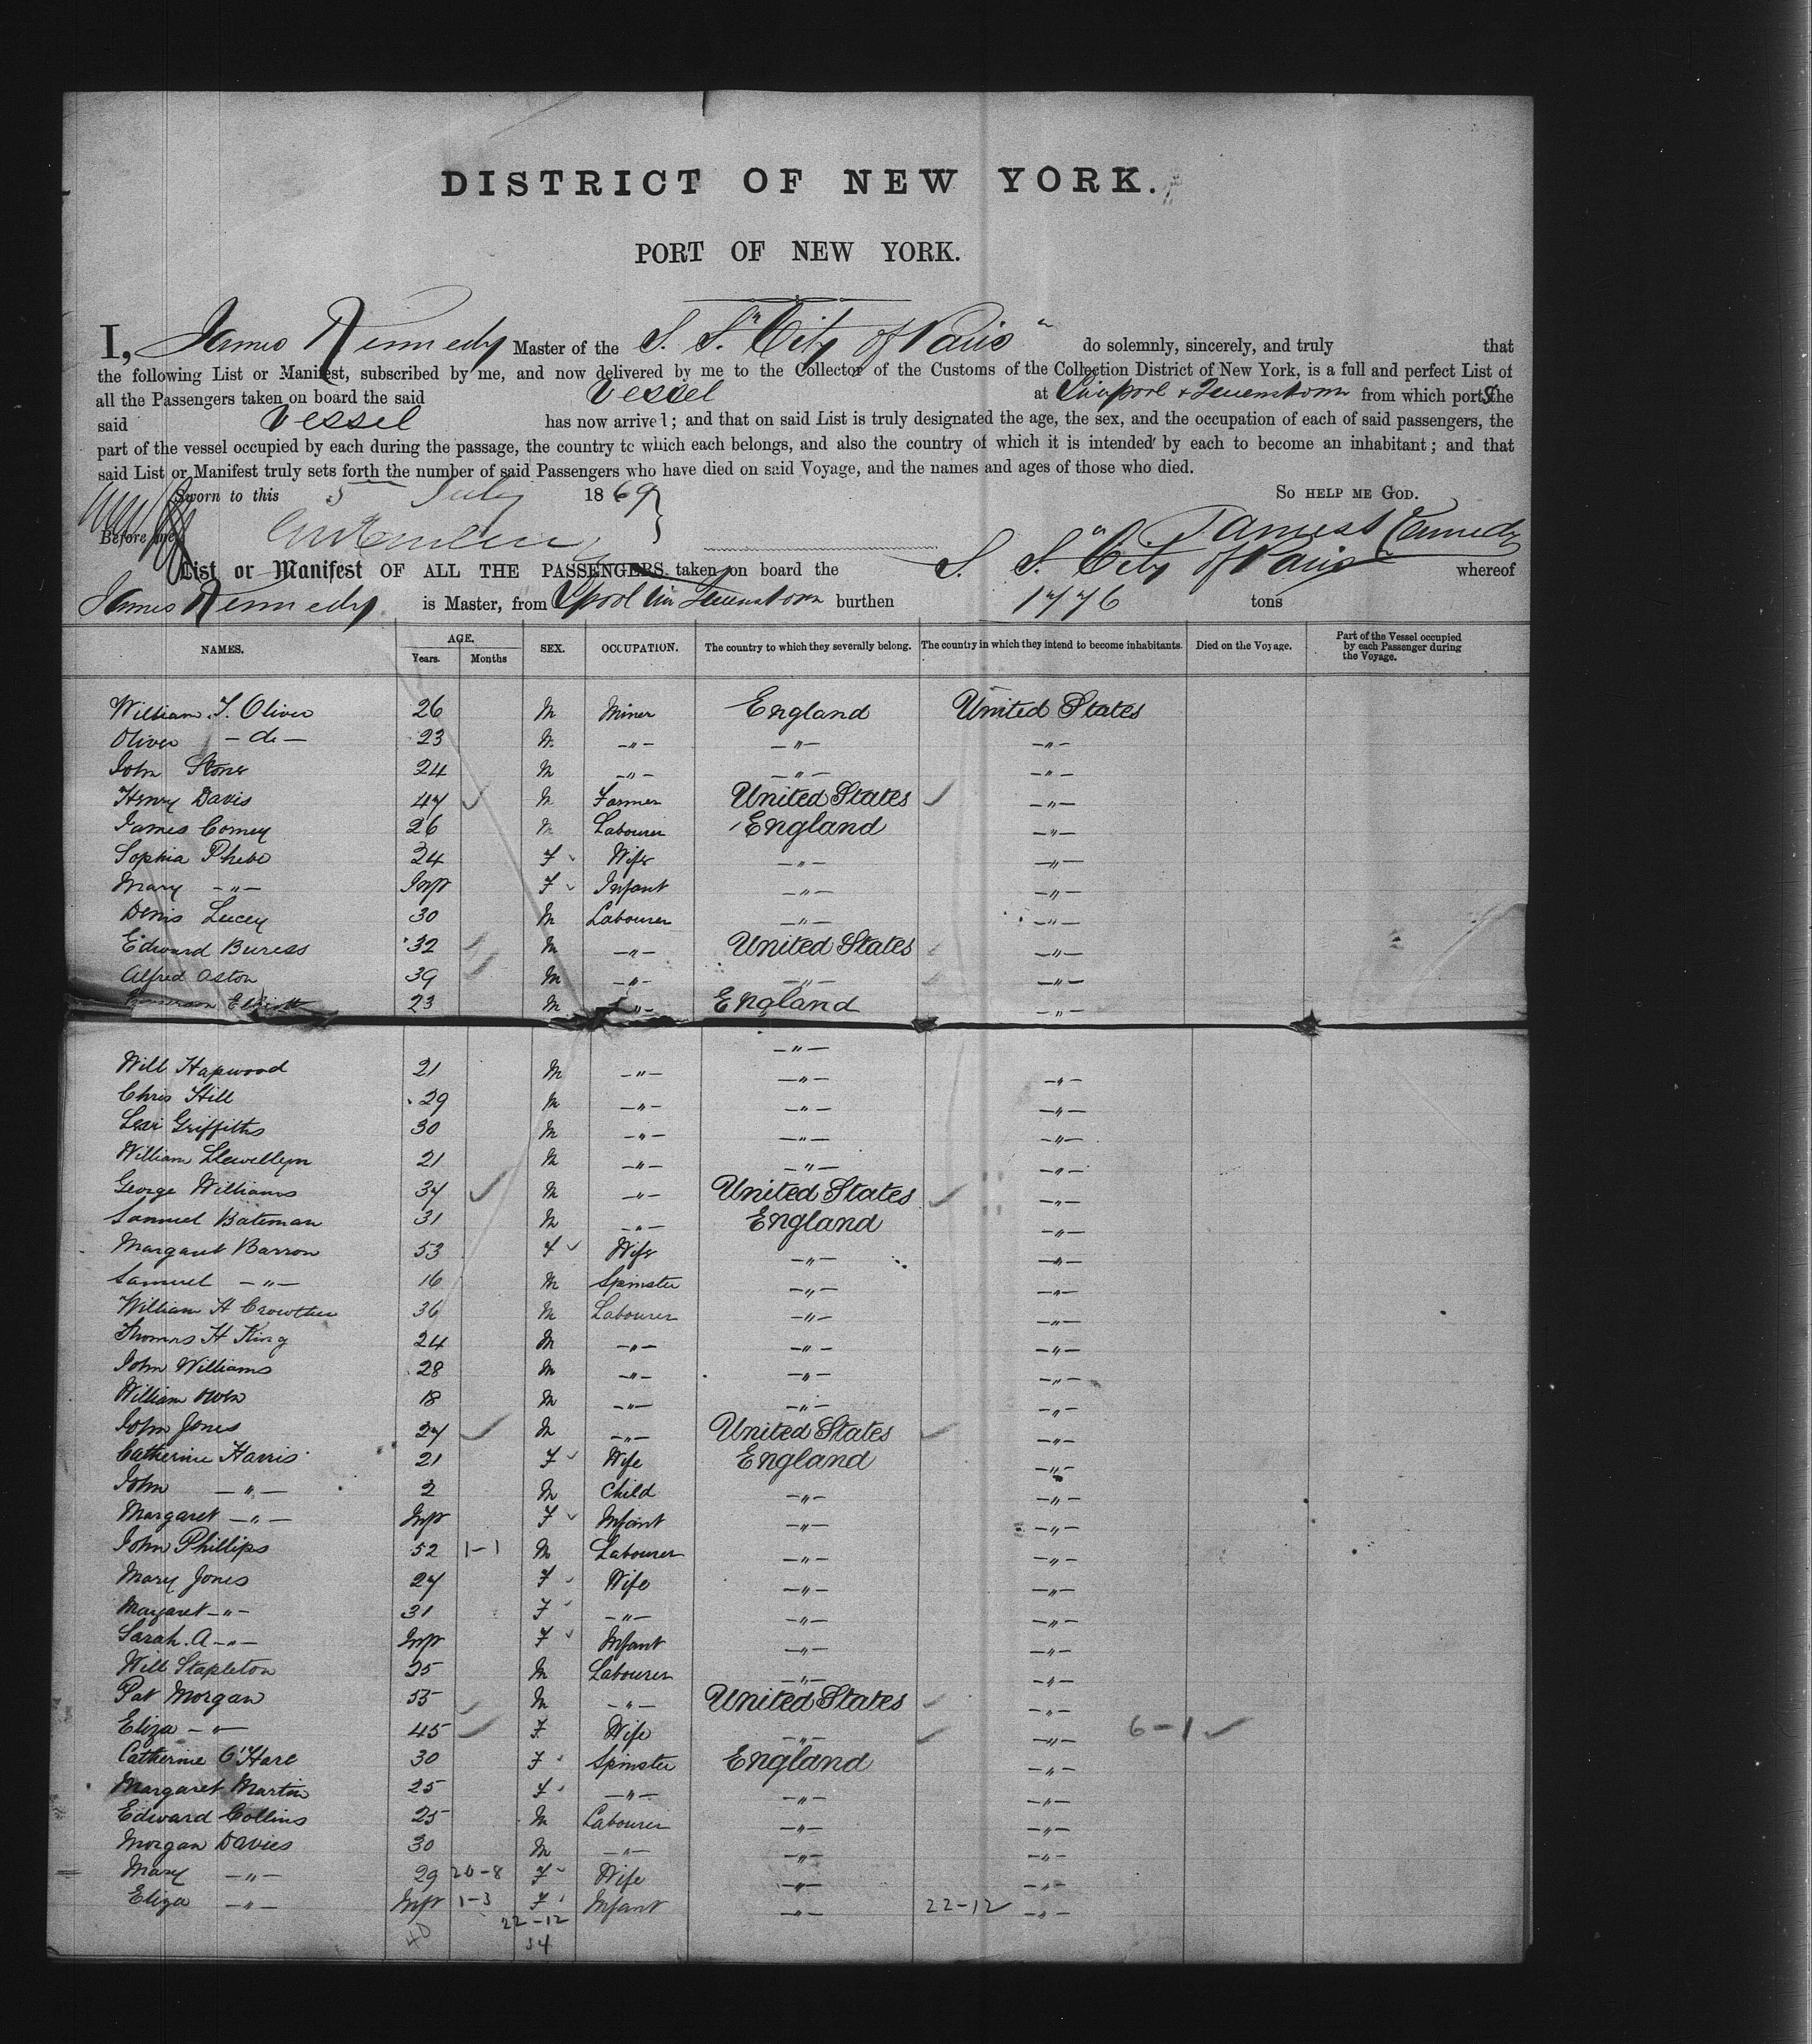 DISTRICT OF NEW YORK.
PORT OF NEW YORK.
I, James Kennedy Master of the S. S. "City of Paris" do solemnly, sincerely, and truly that
the following List or Manifest, subscribed by me, and now delivered by me to the Collector of the Customs of the Collection District of New York, is a full and perfect List of
all the Passengers taken on board the said Vessel at Liverpool & Queenstown from which ports the
said Vessel has now arrived; and that on said List is truly designated the age, the sex, and the occupation of each of said passengers, the
part of the vessel occupied by each during the passage, the country to which each belongs, and also the country of which it is intended by each to become an inhabitant; and that
said List or Manifest truly sets forth the number of said Passengers who have died on said Voyage, and the names and ages of those who died.
Sworn to this 5th July 1869 So HELP ME GOD.
Before me James Kennedy
List or Manifest OF ALL THE PASSENGERS taken on board the S. S. "City of Paris" whereof
James Kennedy is Master, from L'pool via Queenstown burthen 1776 tons
NAMES. AGE. Years. Months SEX. OCCUPATION. The country to which they severally belong. The country in which they intend to become inhabitants. Died on the Voyage. Part of the Vessel occupied by each Passenger during the Voyage.
William T. Oliver 26 M Miner England United States
Oliver — do — 23 M —"— —"— —"—
John Stoner 24 M —"— —"— —"—
Henry Davis 47 M Farmer United States —"—
James Comey 26 M Labourer England —"—
Sophia Phebe 24 F Wife —"— —"—
Mary —"— Inft F Infant —"— —"—
Denis Lucey 30 M Labourer —"— —"—
Edward Buress 32 M —"— United States —"—
Alfred Aston 39 M —"— —"— —"—
Elliott 23 M —"— England —"—
—"—
Will Hapwood 21 M —"— —"— —"—
Chris Hill 29 M —"— —"— —"—
Levi Griffiths 30 M —"— —"— —"—
William Llewellyn 21 M —"— —"— —"—
George Williams 37 M —"— United States —"—
Samuel Bateman 31 M —"— England —"—
Margaret Barron 53 F Wife —"— —"—
Samuel —"— 16 M Spinster —"— —"—
William H Crowther 36 M Labourer —"— —"—
Thomas H King 24 M —"— —"— —"—
John Williams 28 M —"— —"— —"—
William Owen 18 M —"— —"— —"—
John Jones 27 M —"— United States —"—
Catherine Harris 21 F Wife England —"—
John —"— 2 M Child —"— —"—
Margaret —"— Inft F Infant —"— —"—
John Phillips 52 1-1 M Labourer —"— —"—
Mary Jones 27 F Wife —"— —"—
Margaret —"— 31 F —"— —"— —"—
Sarah. A —"— Inft F Infant —"— —"—
Will Stapleton 25 M Labourer —"— —"—
Pat Morgan 55 M —"— United States —"—
Eliza —"— 45 F Wife —"— —"— 6-1
Catherine O'Hare 30 F Spinster England —"—
Margaret Martin 25 F —"— —"— —"—
Edward Collins 25 M Labourer —"— —"—
Morgan Davies 30 M —"— —"— —"—
Mary —"— 29 20-8 F Wife —"— —"—
Eliza —"— Inft 1-3 F Infant —"— 22-12 —"—
40 22-12
34